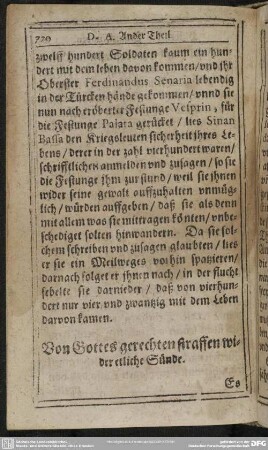 720 D. A. Ander Theil
zwelff hundert Soldaten kaum ein hun-
dert mit dem leben davon kommen / und jhr
Oberster Ferdinandus Senaria lebendig
in der Türcken hände gekommen / unnd sie
nun nach eröberter Festunge Vesprin, für
die Festunge Palata gerücket / lies Sinan
Bassa den Kriegsleuten sicherheit jhres Le-
bens / derer in der zahl vierhundert waren /
schrifftlichen anmelden und zusagen / so sie
die Festunge jhm zur stund / weil sie jhnen
wider seine gewalt auffzuhalten vnmüg-
lich / würden auffgeben / daß sie als denn
mit allem was sie mittragen könten / vnbe-
schediget solten hinwandern. Da sie sol-
chem schreiben vnd zusagen glaubten / lies
er sie ein Meilweges vorhin spatzieren /
darnach folget er jhnen nach / in der flucht
sebelte sie darnieder / daß von vierhun-
dert nur vier vnd zwantzig mit dem Leben
darvon kamen.
Von Gottes gerechten straffen wi-
der etliche Sünde.
Es